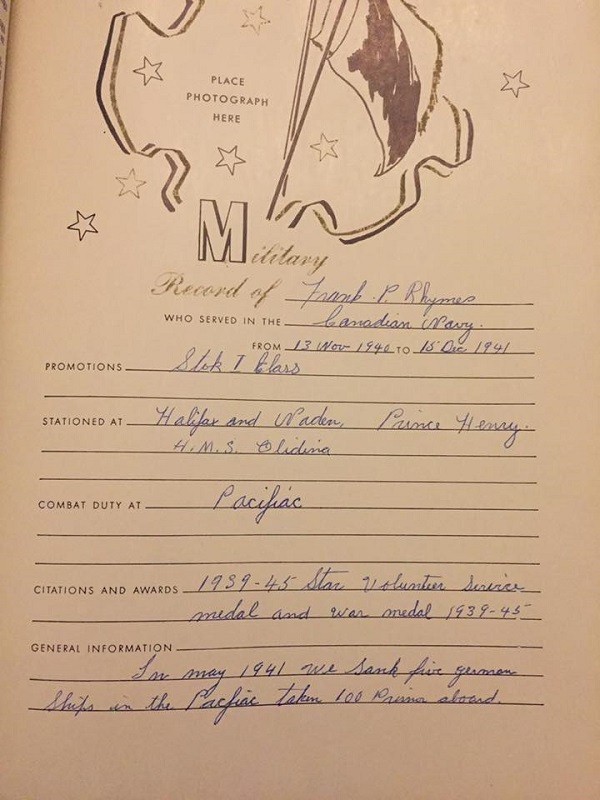 PLACE
PHOTOGRAPH
HERE
Military
Record of Frank P. Rhymes
WHO SERVED IN THE Canadian Navy.
FROM 13 Nov 1940 TO 15 Dec 1941
PROMOTIONS Stok I Class
STATIONED AT Halifax and Naden, Prince Henry.
H.M.S.
COMBAT DUTY AT Pacifiac
CITATIONS AND AWARDS 1939-45 Star Volunteer Service
medal and war medal 1939-45
GENERAL INFORMATION
In may 1941 we sank five german
Ships in the Pacfiac taken 100 aboard.